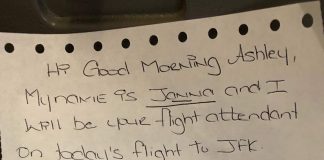 Hi Good Morning Ashley,
My name is Janna and I
will be your flight attendant
on today's flight to JFK.